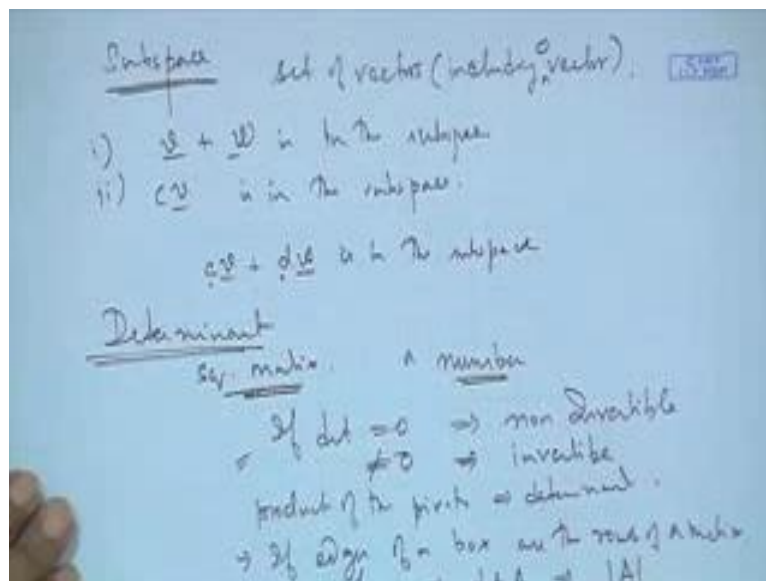 Subspace set of vectors (including 0 vector).
i) v + w is in the subspace
ii) cv is in the subspace.
cv + dw is in the subspace
Determinant
sq. matrix. A number
If det = 0 ⇒ non Invertible
≠ 0 ⇒ invertible
product of the pivots ⇒ determinant.
→ If edges of a box are the rows of A matrix
⇒ |A|